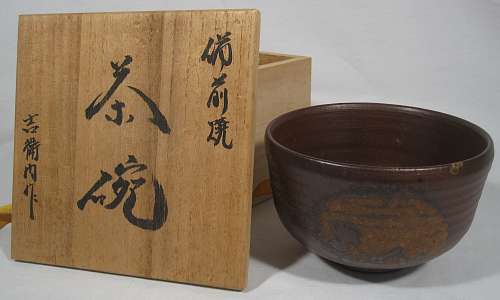 備前焼
茶碗
吉衛門作